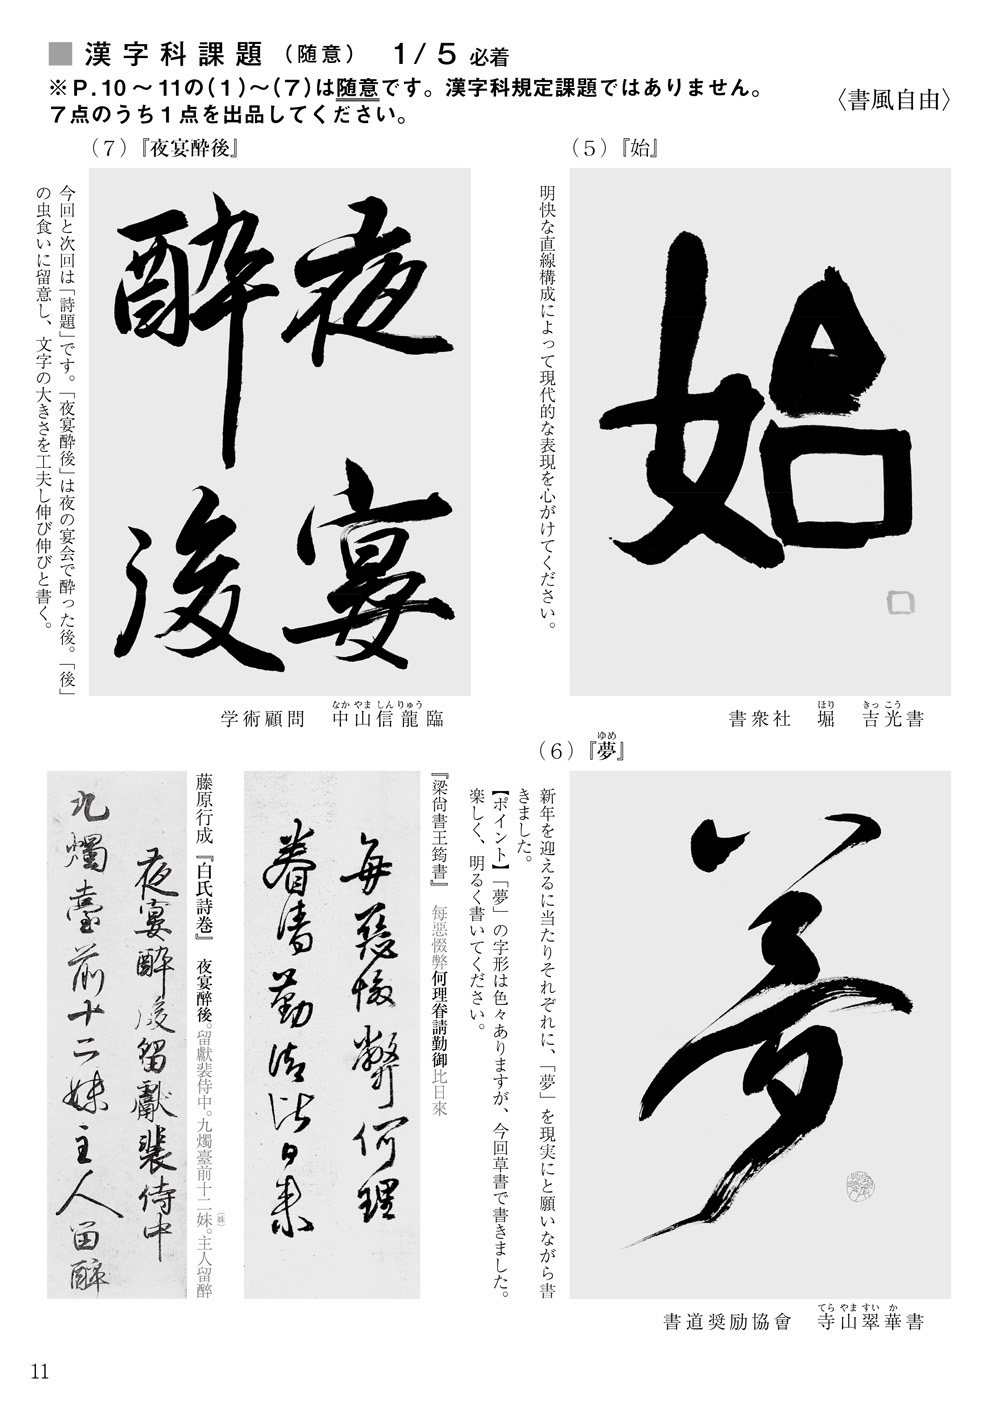 ■漢字科課題（随意） 1/5必着
※P.10～11の（1）～（7）は随意です。漢字科規定課題ではありません。
7点のうち1点を出品してください。
〈書風自由〉
（5）『始』
始
明快な直線構成によって現代的な表現を心がけてください。
書衆社 堀 吉光書
ほり きっこう
（6）『夢』
ゆめ
夢
新年を迎えるに当たりそれぞれに、「夢」を現実にと願いながら書
きました。
【ポイント】「夢」の字形は色々ありますが、今回草書で書きました。
楽しく、明るく書いてください。
書道奨励協會 寺山翠華書
てらやますいか
（7）『夜宴酔後』
夜宴
酔後
今回と次回は「詩題」です。「夜宴酔後」は夜の宴会で酔った後。「後」
の虫食いに留意し、文字の大きさを工夫し伸び伸びと書く。
学術顧問 中山信龍臨
なかやましんりゅう
『梁尚書王筠書』 毎惡惙弊何理眷請勤御比日來
毎惡惙弊何理
眷請勤御比日來
藤原行成『白氏詩巻』 夜宴醉後。留獻裴侍中。九燭臺前十二妹。主人留醉
（姝）
夜宴醉後留獻裴侍中
九燭臺前十二妹主人留醉
11